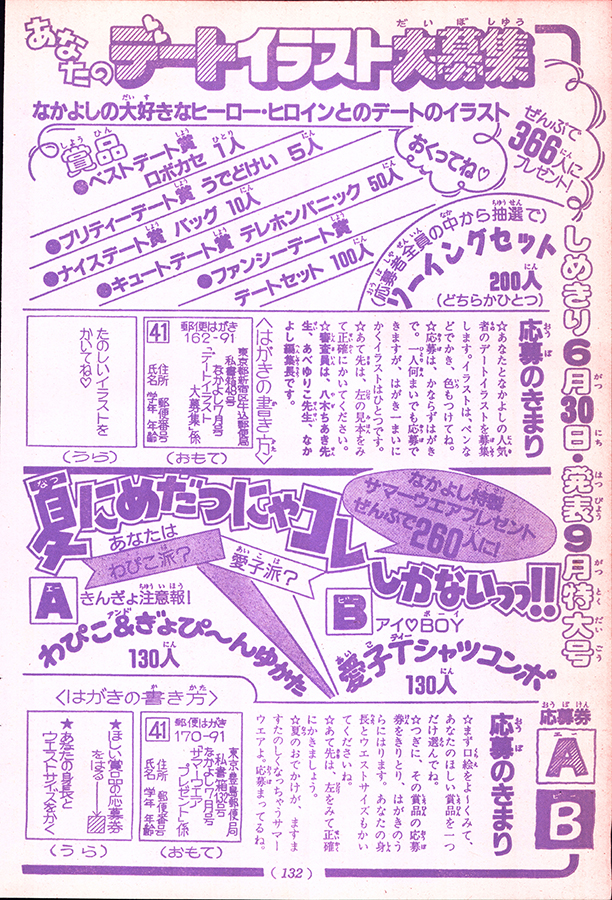 あなたの デートイラスト大募集
なかよしの大好きなヒーロー・ヒロインとのデートのイラスト
おくってね♡
ぜんぶで
366人に
プレゼント!
賞品
●ベストデート賞 ロボカセ 1人
●プリティーデート賞 うでどけい 5人
●ナイスデート賞 バッグ 10人
●キュートデート賞 テレホンパニック 50人
●ファンシーデート賞
デートセット 100人
(応募者全員の中から抽選で)
ソーイングセット
200人
(どちらかひとつ)
しめきり6月30日・発表9月特大号
応募のきまり
☆あなたとなかよしの人気
者のデートイラストを募集
します。イラストは、ペンな
どでかき、色もつけてね。
☆応募は、かならずはがき
で。一人何まいでも応募で
きますが、はがき一まいに
かくイラストはひとつです。
☆あて先は、左の見本をみ
て正確にかいてください。
☆審査員は、八木ちあき先
生、あべゆりこ先生、なか
よし編集長です。
〈はがきの書き方〉
41
郵便はがき
162-91
東京都新宿区牛込郵便局
私書箱49号
なかよし7月号
「デートイラスト
大募集」係
住所 郵便番号
氏名 学年 年齢
(おもて)
たのしいイラストを
かいてね♡
(うら)
夏にめだつにゃコレ
しかないっっ!!
なかよし特製
サマーウエアプレゼント
ぜんぶで260人に!
あなたは
わぴこ派?
愛子派?
A
きんぎょ注意報!
わぴこ&ぎょぴ〜んゆかた
130人
B
アイ♡BOY
愛子Tシャツコンポ
130人
応募券
A
B
応募のきまり
☆まず口絵をよ〜くみて、
あなたのほしい賞品を一つ
だけ選んでね。
☆つぎに、その賞品の応募
券をきりとり、はがきのう
らにはります。あなたの身
長とウエストサイズもかい
てくださいね。
☆あて先は、左をみて正確
にかきましょう。
☆夏のおでかけが、ますま
すたのしくなっちゃうサマー
ウエアよ。応募まってるね。
〈はがきの書き方〉
41
郵便はがき
170-91
東京・豊島郵便局
私書箱132号
なかよし7月号
「サマーウエア
プレゼント」係
住所 郵便番号
氏名 学年 年齢
(おもて)
★ほしい賞品の応募券
をはる
★あなたの身長と
ウエストサイズをかく
(うら)
(132)